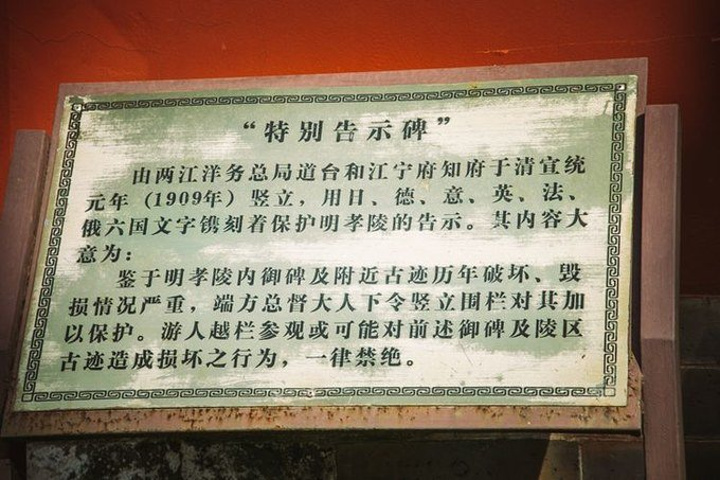 “特别告示碑”
由两江洋务总局道台和江宁府知府于清宣统
元年（1909年）竖立，用日、德、意、英、法、
俄六国文字镌刻着保护明孝陵的告示。其内容大
意为：
鉴于明孝陵内御碑及附近古迹历年破坏、毁
损情况严重，端方总督大人下令竖立围栏对其加
以保护。游人越栏参观或可能对前述御碑及陵区
古迹造成损坏之行为，一律禁绝。